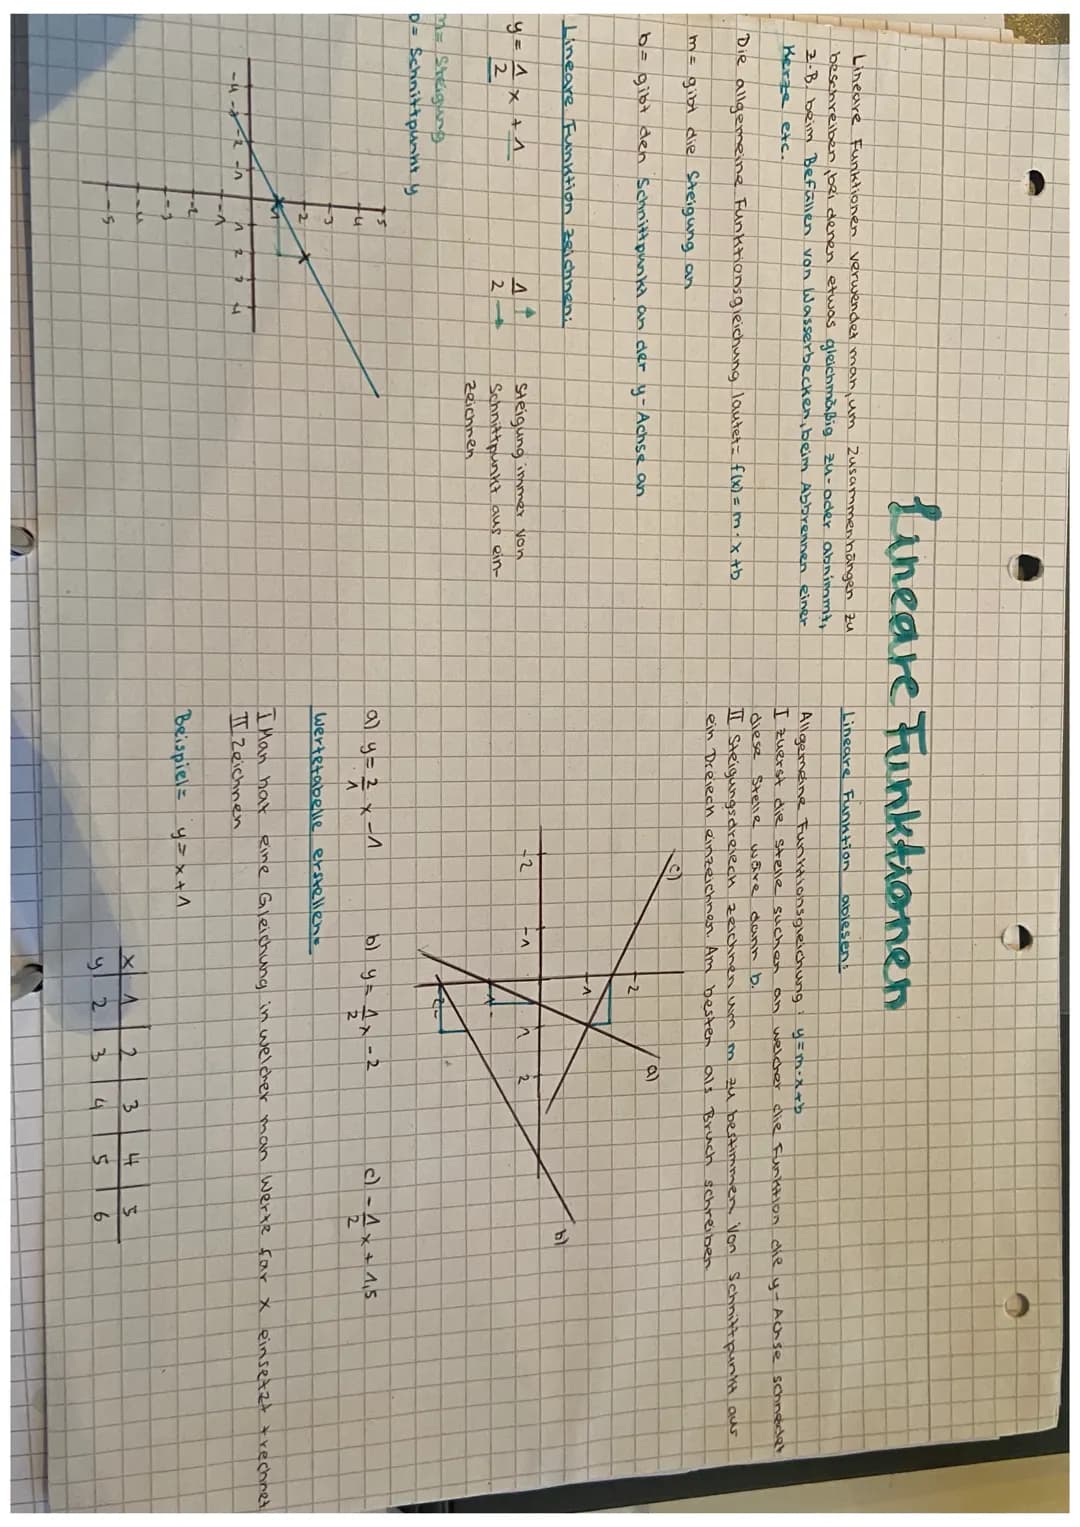 Lineare Funktionen
Lineare Funktionen verwendet man, um Zusammenhängen zu
beschreiben, bei denen etwas gleichmäßig zu- oder abnimmt,
z.B. beim Befüllen von Wasserbecken, beim Abbrennen einer
Kerze etc.
Die allgemeine Funktionsgleichung lautet= f(x) = m·x+b
m= gibt die Steigung an
b= gibt den Schnittpunkt an der y-Achse an
Lineare Funktion zeichnen:
y = 1/2 x + 1
1/2
Steigung immer von
Schnittpunkt aus ein-
zeichnen
m= Steigung
b= Schnittpunkt y
5
4
3
2
1
-4 -3 -2 -1 1 2 3 4
-1
-2
-3
-4
-5
Lineare Funktion ablesen:
Allgemeine Funktionsgleichung: y=m·x+b
I Zuerst die Stelle suchen an welcher die Funktion die y-Achse schneidet
diese Stelle wäre dann b.
II Steigungsdreieck zeichnen um m zu bestimmen. Von Schnittpunkt aus
ein Dreieck einzeichnen. Am besten als Bruch schreiben
c)
a)
b)
2
1
-2 -1 1 2
-1
-2
a) y = 2/1 x -1 b) y = 1/2 x -2 c) -1/2 x + 1,5
Wertetabelle erstellen=
I Man hat eine Gleichung in welcher man Werte für x einsetzt + rechnet
II Zeichnen
Beispiel= y = x+1
x 1 2 3 4 5
y 2 3 4 5 6